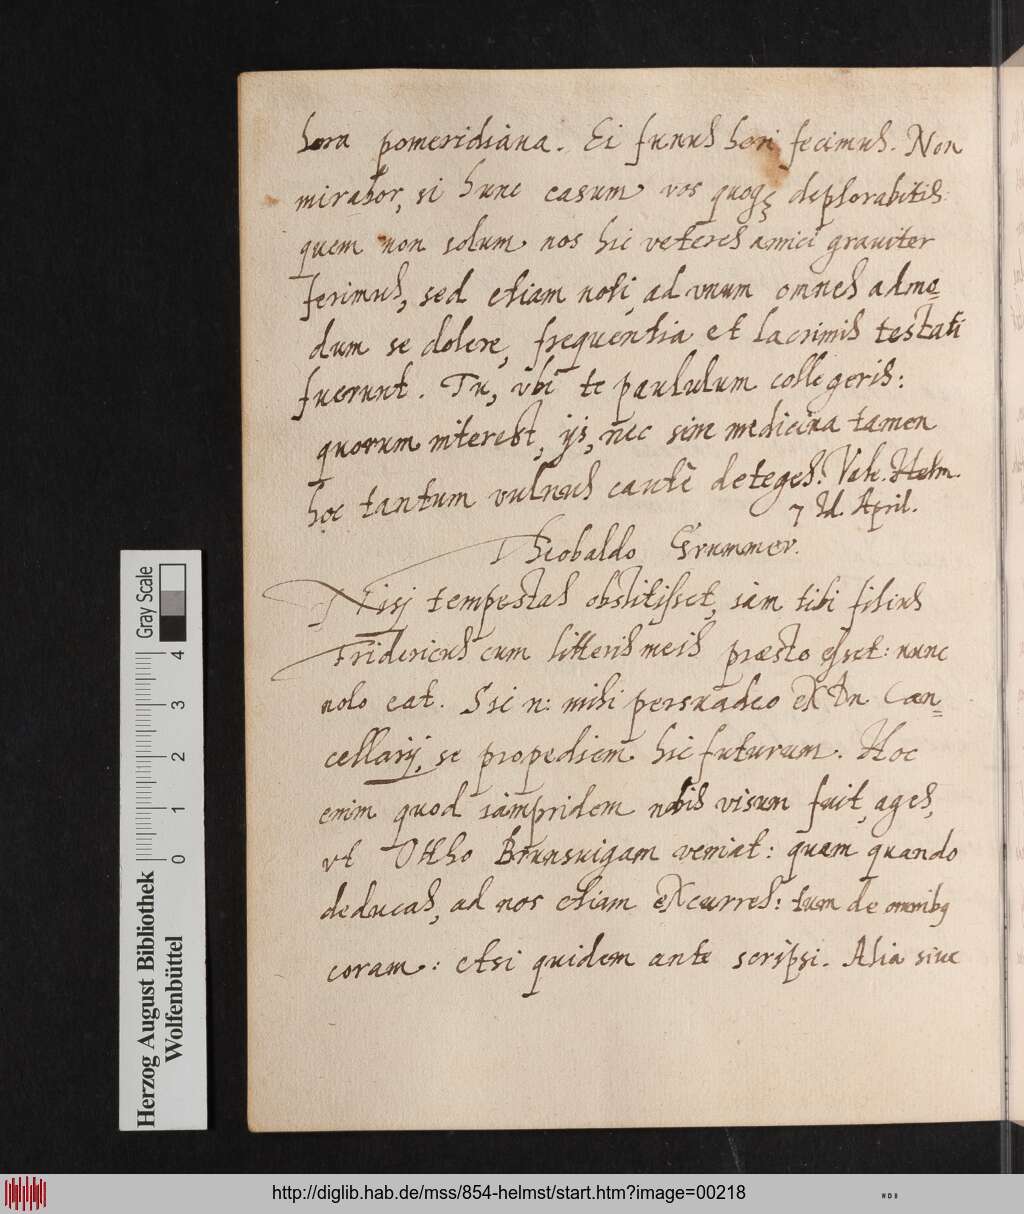 hora pomeridiana. Ei funus heri fecimus. Non
mirabor, si hunc casum vos quoqꝫ deplorabitis:
quem non solum nos hic veteres amici grauiter
ferimus, sed etiam noti, ad vnum omnes admo=
dum se dolere, frequentia et lacrimis testati
fuerunt. Tu, vbi te paululum collegeris:
quorum interest, ijs, nec sine medicina tamen
hoc tantum vulnus cautè deteges. Vale. Helm.
7 Id. April.
Theobaldo Grummer.
Nisj tempestas obstitisset, iam tibi filius
Fridericus cum litteris meis præsto esset: nunc
nolo eat. Sic n: mihi persuadeo ex Can=
cellarij, se propediem hic futurum. Hoc
enim quod iampridem nobis visum fuit, ages,
vt Ottho Brunsuigam veniat: quem quando
deducas, ad nos etiam excurres: tum de omnibꝫ
coram: etsi quidem ante scripsi. Alia siue
Herzog August Bibliothek
Wolfenbüttel
Gray Scale
0 1 2 3 4
http://diglib.hab.de/mss/854-helmst/start.htm?image=00218
WDB